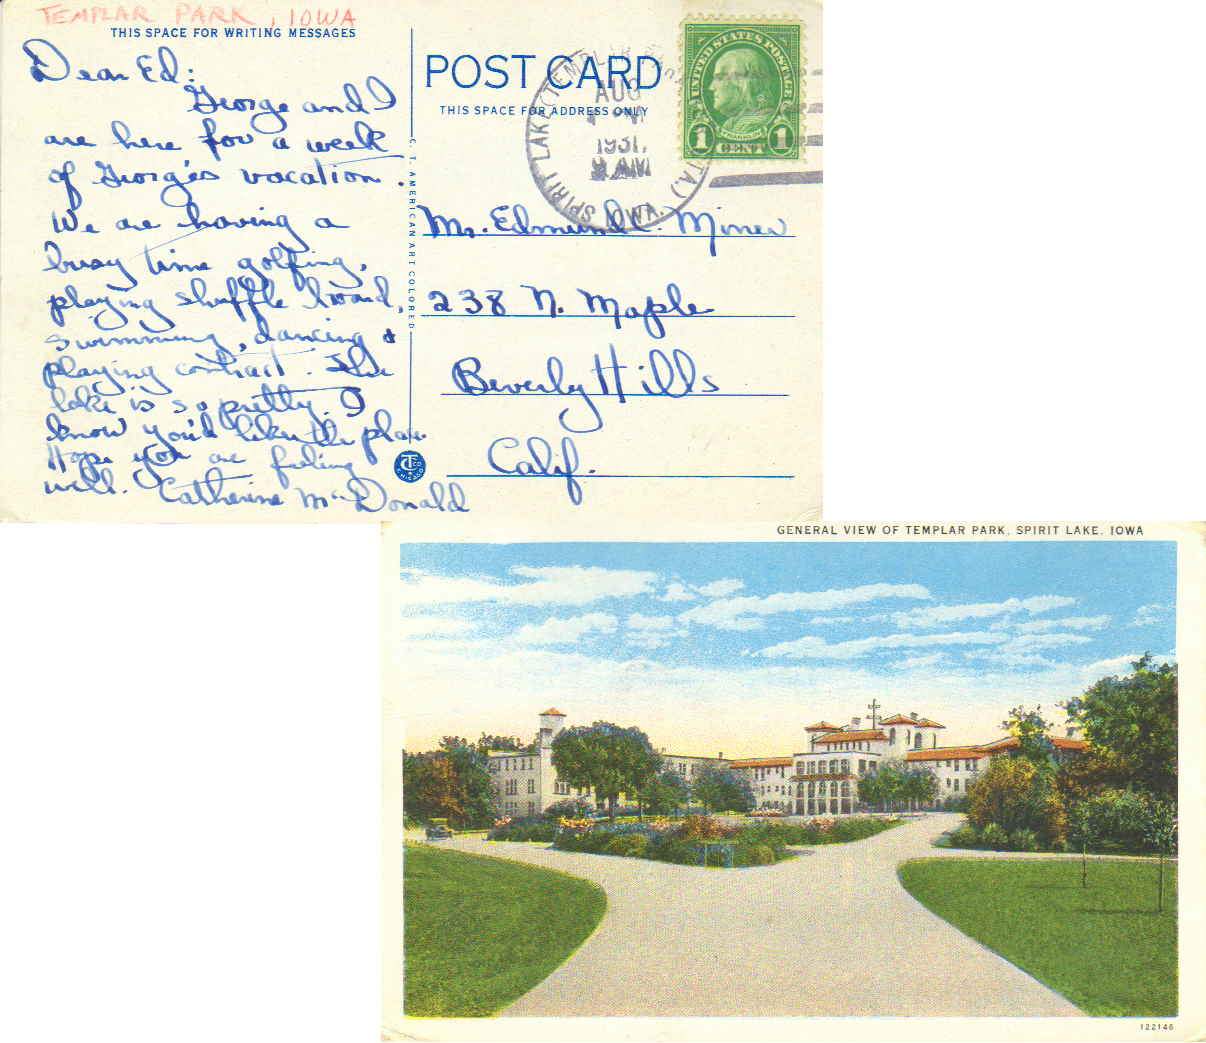 TEMPLAR PARK, IOWA
THIS SPACE FOR WRITING MESSAGES
Dear Ed:
George and I
are here for a week
of George's vacation.
We are having a
busy time golfing,
playing shuffle board,
swimming, dancing &
playing contract. The
lake is so pretty. I
know you'd like the place.
Hope you are feeling
well. Catherine McDonald
C. T. AMERICAN ART COLORED
POST CARD
THIS SPACE FOR ADDRESS ONLY
SPIRIT LAKE (TEMPLAR PARK STA.) IOWA.
AUG
1931
AM
UNITED STATES POSTAGE
FRANKLIN
1 CENT 1
Mr. Edmund C. Miner
238 N. Maple
Beverly Hills
Calif.
CT CO
CHICAGO
GENERAL VIEW OF TEMPLAR PARK, SPIRIT LAKE, IOWA
122146